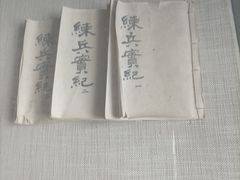 練兵實紀 一
練兵實紀 二
練兵實紀